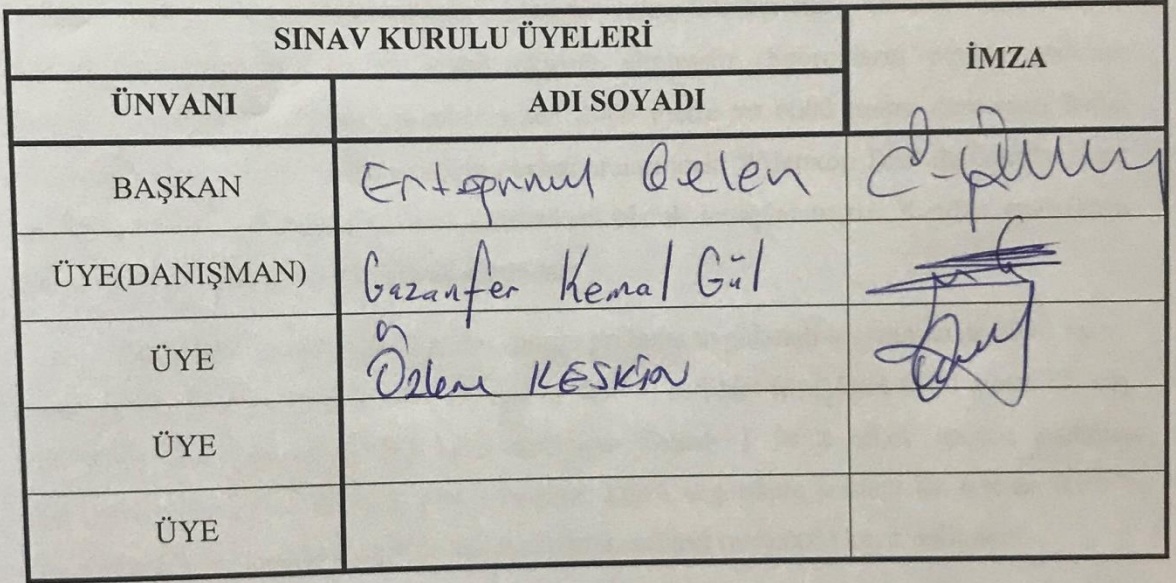 SINAV KURULU ÜYELERİ
İMZA
ÜNVANI ADI SOYADI
BAŞKAN Gelen
ÜYE(DANIŞMAN) Gazanfer Kemal Gül
ÜYE Özlem KESKİN
ÜYE
ÜYE